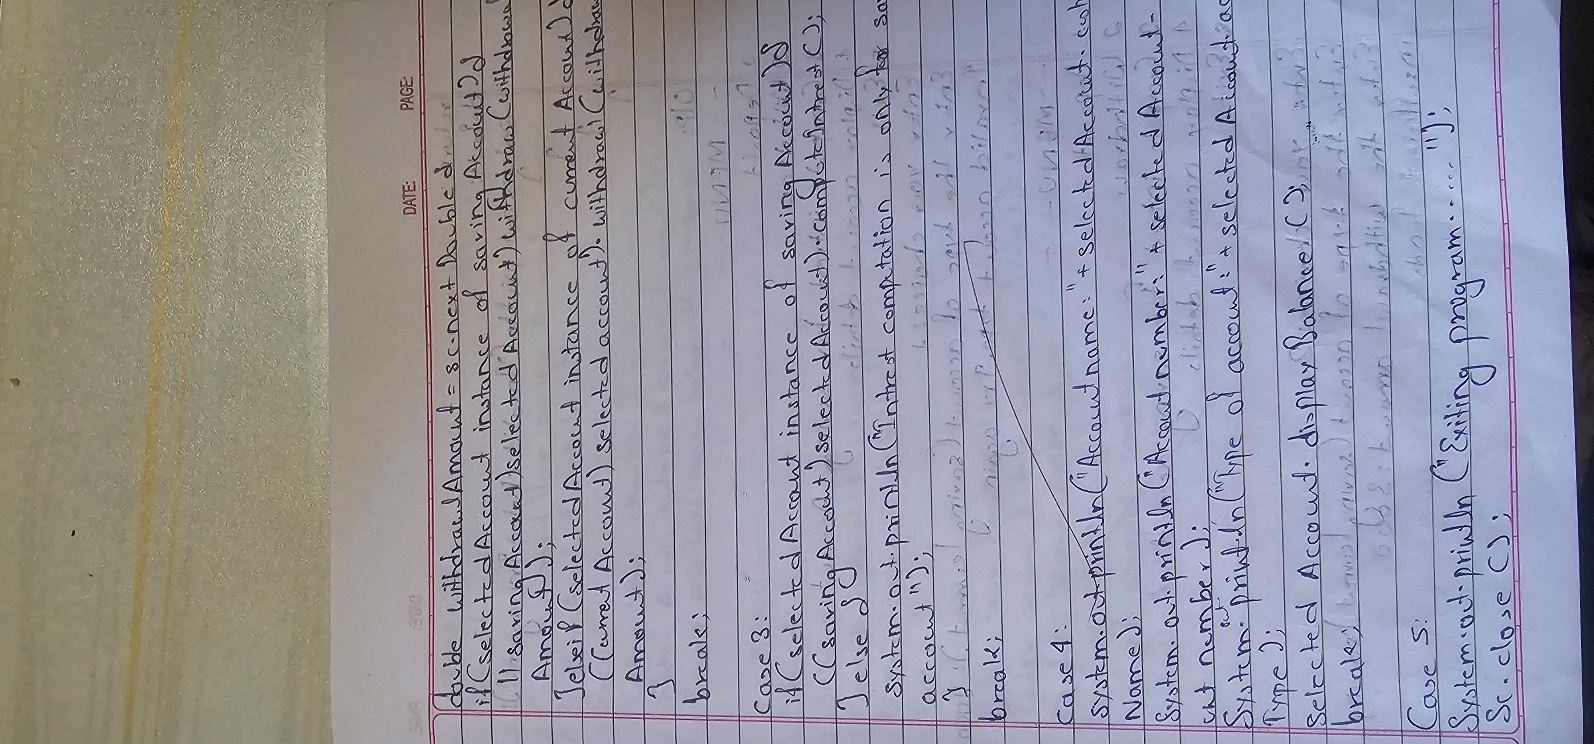 DATE: PAGE:
double withdrawlAmount = sc.next Double
if (selectedAccount instance of saring Account){
((saring Account)selected Account).withdraw(withdrawl
Amount);
}elseif (selectedAccount instance of current Account)
((current Account) selected account). withdrawl (withdraw
Amount);
}
break;
Case 3:
if (selected Account instance of saring Account){
((saring Account) selected Account).compute Intrest();
}else {
System.out.println("Intrest computation is only for sa
account");
}
break;
Case 4:
System.out.println("Account name:" + selected Account.
Name);
System.out.println("Account number:" + selected Account.
unt number);
System.out.println("Type of account:" + selected Account.ac
Type);
Selected Account.display Balance();
break;
Case 5:
System.out.println ("Exiting program.....");
Sc.close();